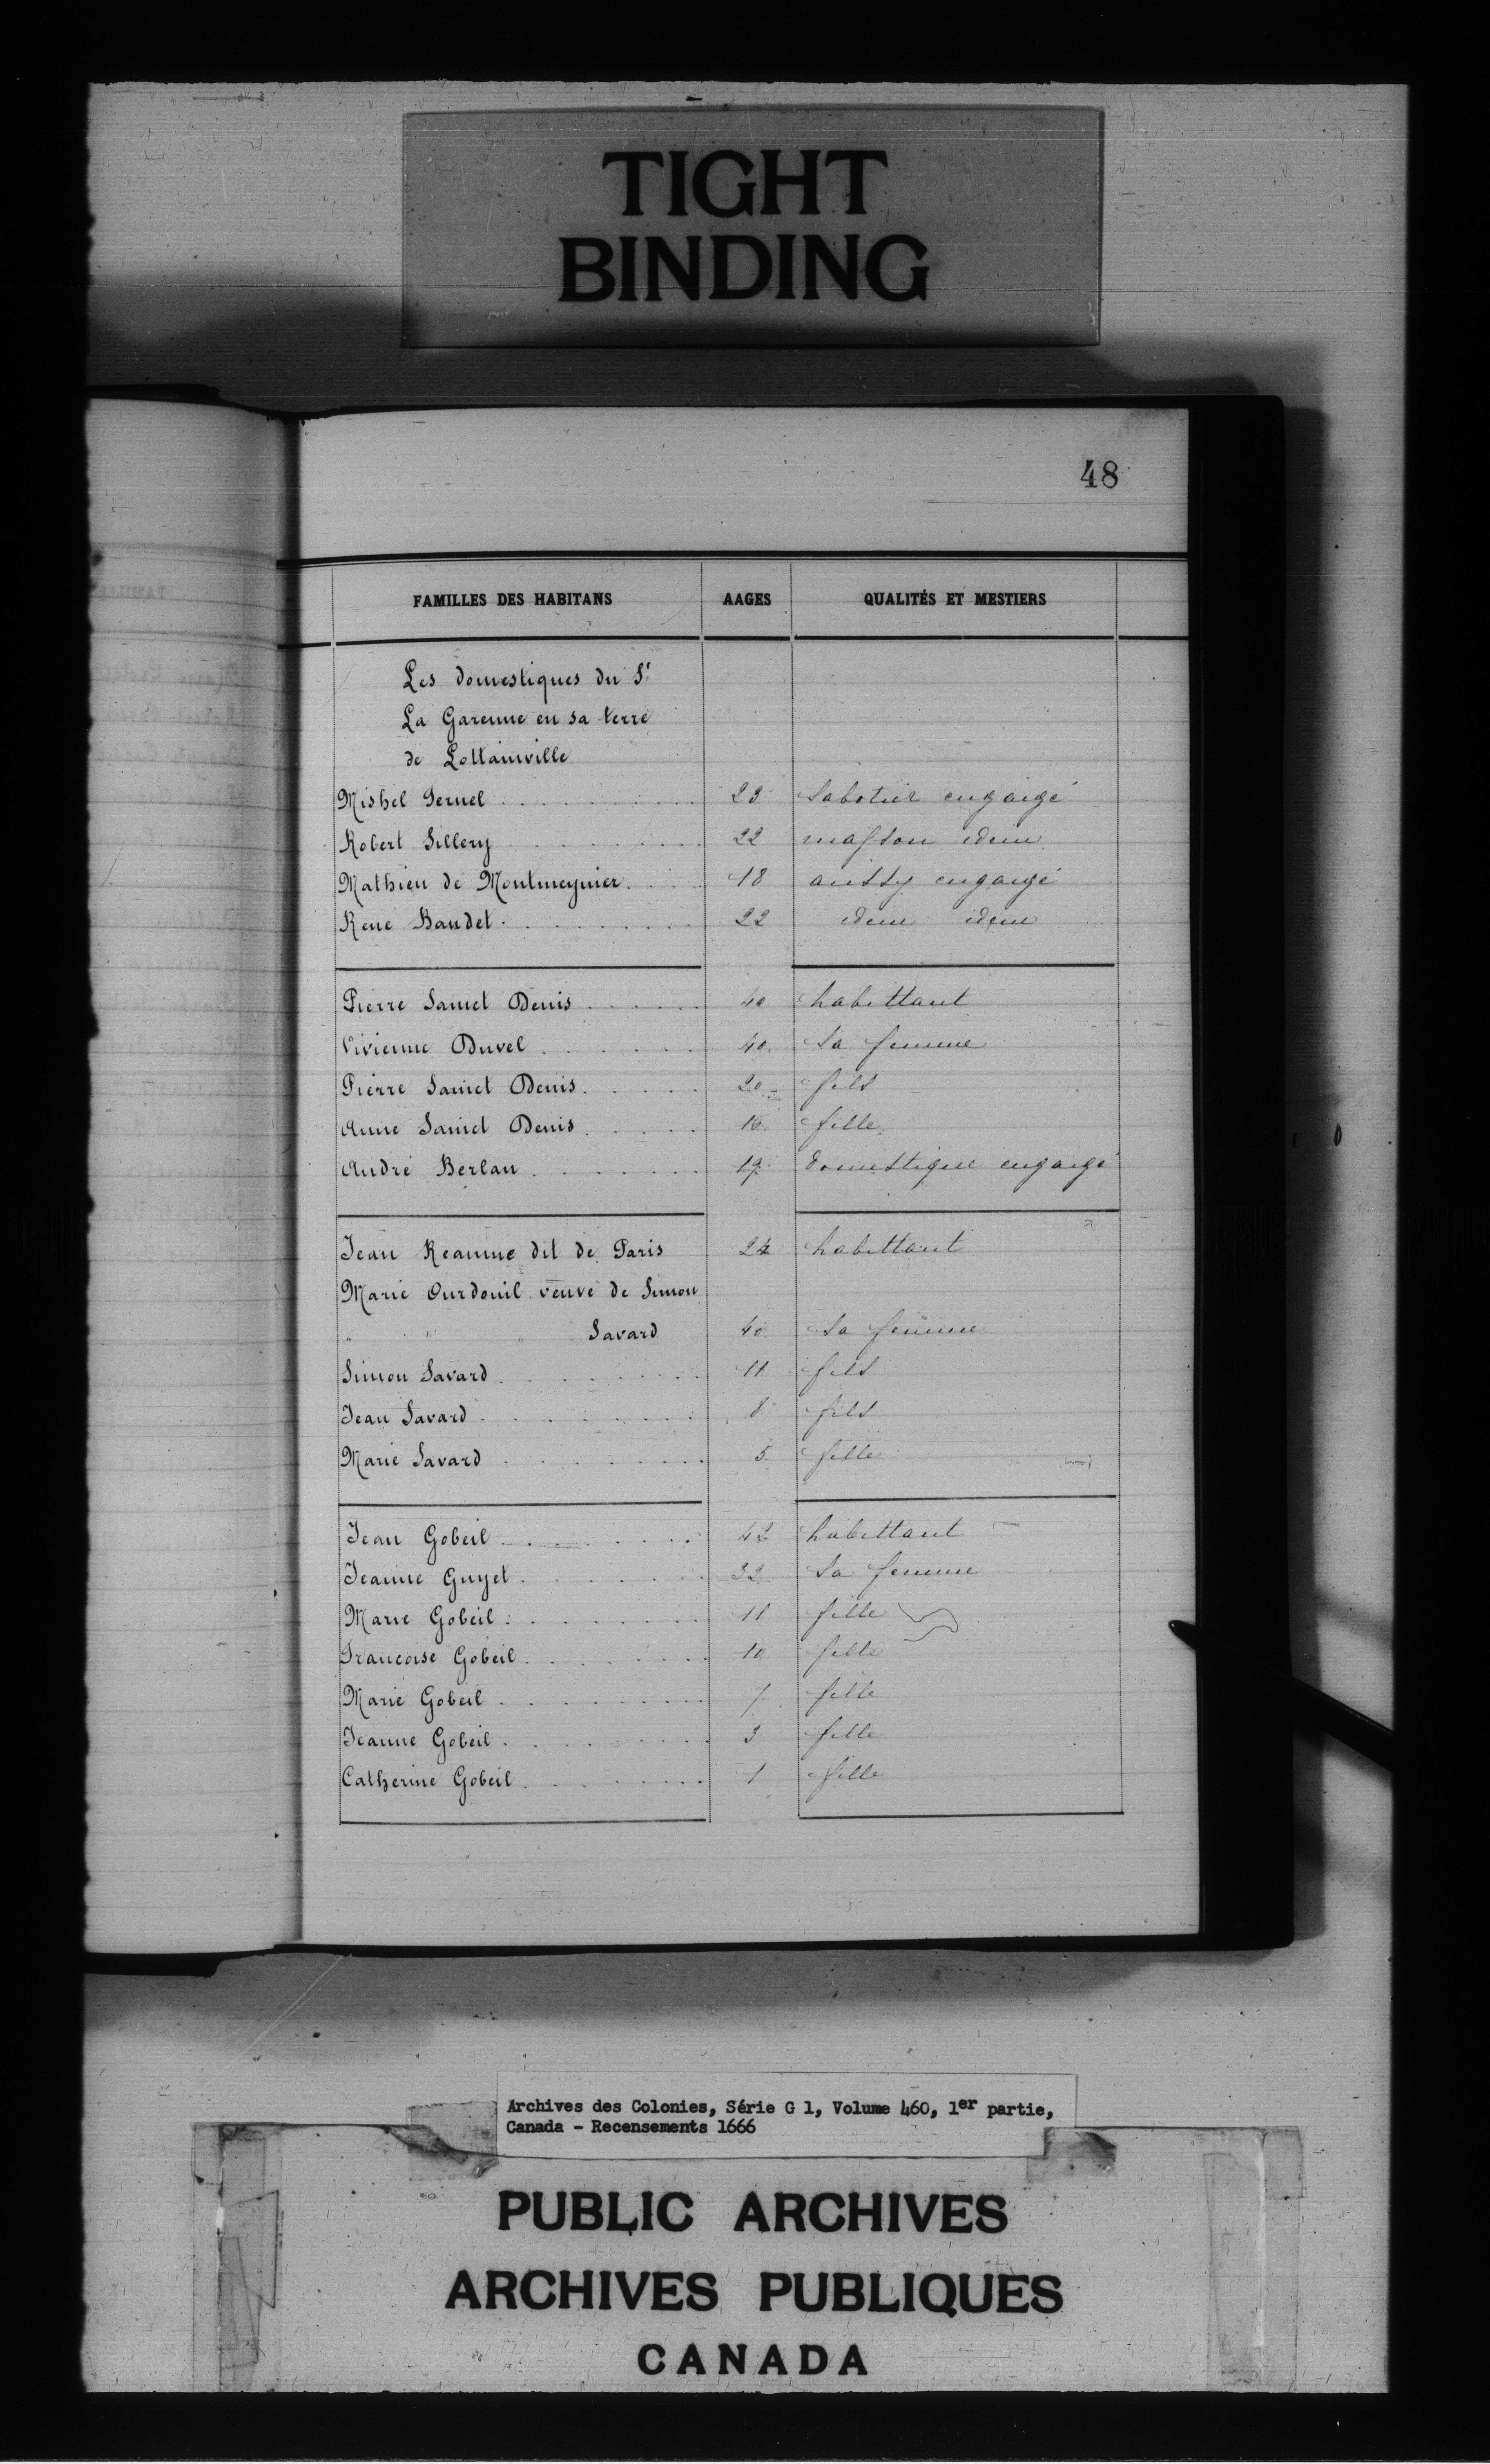 TIGHT
BINDING
48
FAMILLES DES HABITANS AAGES QUALITÉS ET MESTIERS
Les domestiques du Sr
La Garenne en sa terre
de Lottainville
Mishel Pernel 23 Sabotier engaigé
Robert Sillery 22 masson idem
Mathieu de Montmeynier 18 aussy engaigé
René Baudet 22 idem idem
Pierre Sainct Denis 40 habittant
Vivienne Buvel 40 Sa femme
Pierre Sainct Denis 20 fils
Anne Sainct Denis 16 fille
André Berlan 19 domestique engaigé
Jean Reaume dit de Paris 24 habittant
Marie Ourdouil veuve de Simon
" " " Savard 40 Sa femme
Simon Savard 11 fils
Jean Savard 8 fils
Marie Savard 5 fille
Jean Gobeil 42 habittant
Jeanne Guyet 32 Sa femme
Marie Gobeil 11 fille
Francoise Gobeil 10 fille
Marie Gobeil 7 fille
Jeanne Gobeil 3 fille
Catherine Gobeil 1 fille
Archives des Colonies, Série G 1, Volume 460, 1er partie,
Canada - Recensements 1666
PUBLIC ARCHIVES
ARCHIVES PUBLIQUES
CANADA